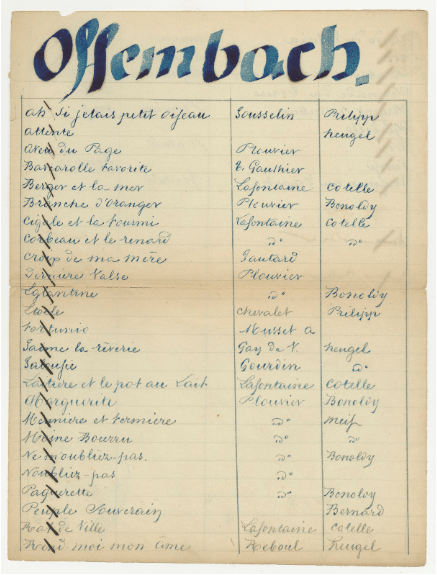 Offembach.
Ah Si j'etais petit Oiseau Gousselin Philipp
Attente heugel
Aveu du Page Plouvier
Barcarolle favorite E. Gauthier
Berger et la mer Lafontaine Cotelle
Branche d'Oranger Plouvier Bonoldy
Cigale et la fourmi Lafontaine Cotelle
Corbeau et le renard do do
Croix de ma mère Gautard
Dernière Valse Plouvier
Eglantine do Bonoldy
Etoile Chevalet Philipp
Fortunio Musset A
J'aime la rêverie Gay de V. heugel
Jalousie Gourdin do
Laitière et le pot au Lait Lafontaine Cotelle
Marguerite Plouvier Bonoldy
Meunière et fermière do Meiss
Moine Bourru do do
Ne m'oubliez-pas. do Bonoldy
N'oubliez-pas do
Paquerette do Bonoldy
Peuple Souverain Bernard
Rat de Ville Lafontaine Cotelle
Rend moi mon âme Reboul Heugel